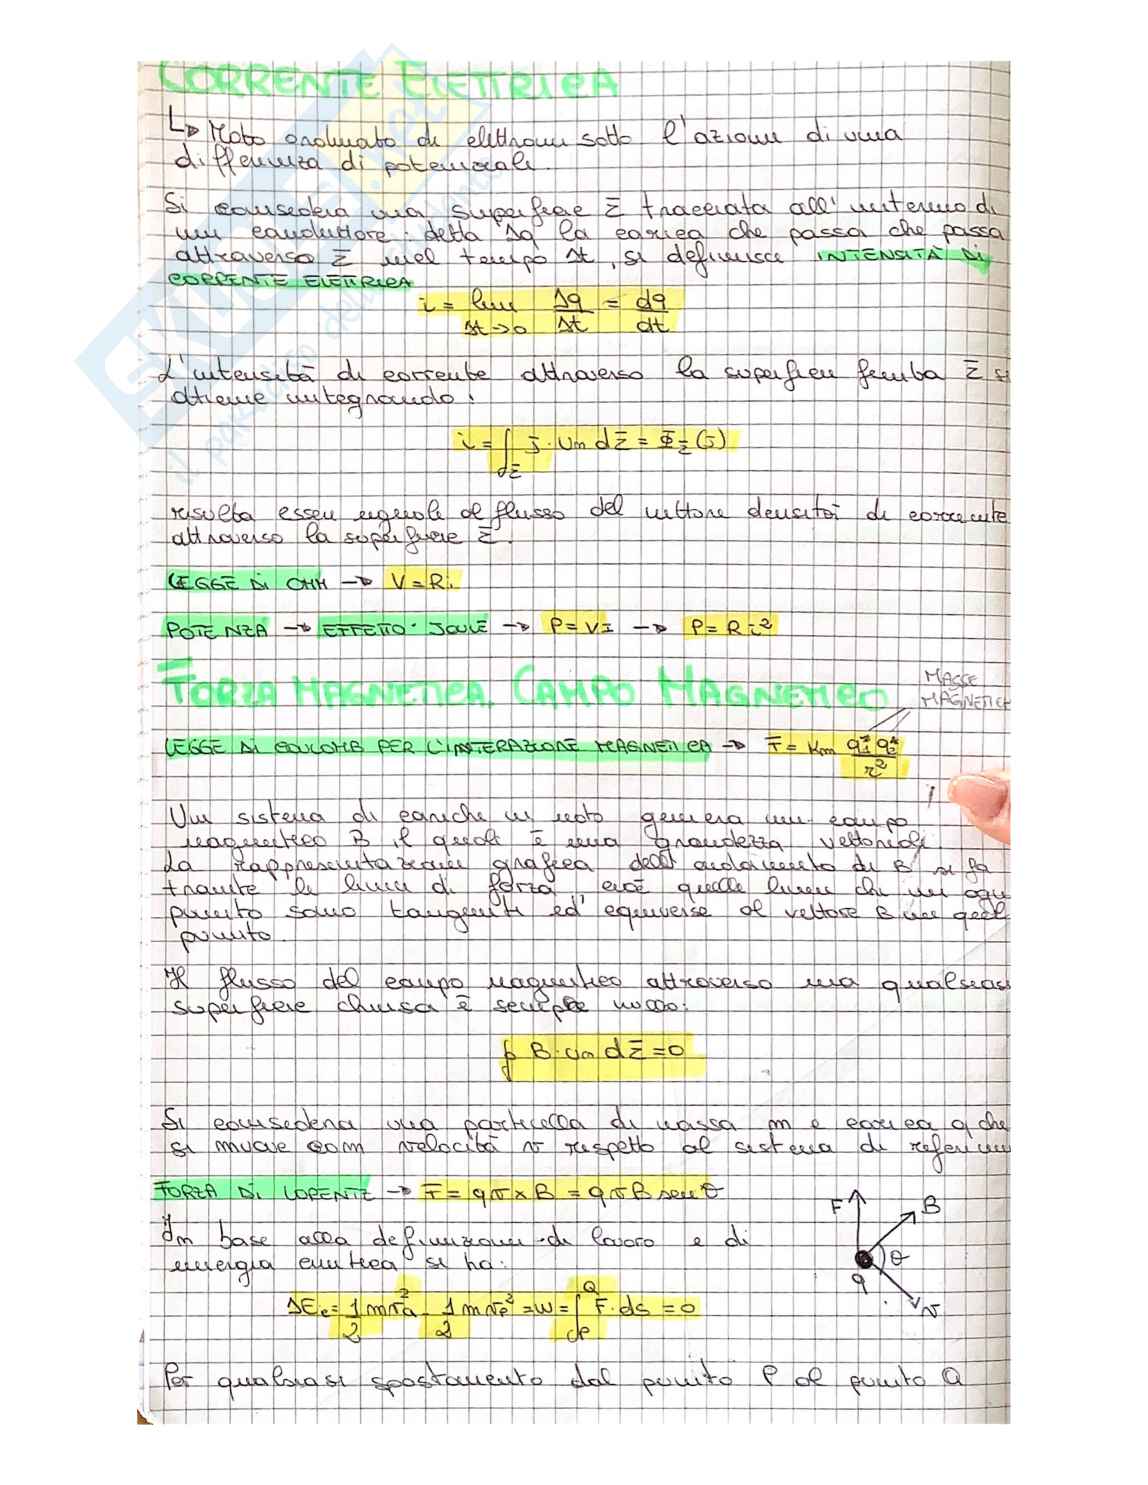 CORRENTE ELETTRICA
↳ Moto ordinato di elettroni sotto l'azione di una
differenza di potenziale.
Si considera una superficie Σ tracciata all'interno di
un conduttore: detta Δq la carica che passa che passa
attraverso Σ nel tempo Δt, si definisce INTENSITÀ DI
CORRENTE ELETTRICA
i = lim Δt→0 Δq/Δt = dq/dt
L'intensità di corrente attraverso la superficie finita Σ si
ottiene integrando:
i = ∫Σ J · un dΣ = ΦΣ(J)
risulta essere uguale al flusso del vettore densità di corrente
attraverso la superficie Σ.
LEGGE DI OHM → V = Ri
POTENZA → EFFETTO JOULE → P = VI → P = Ri²
FORZA MAGNETICA. CAMPO MAGNETICO
MASSE
MAGNETICH
LEGGE DI COULOMB PER L'INTERAZIONE MAGNETICA → F = Km q₁* q₂* / r²
Un sistema di cariche in moto genera un campo
magnetico B, il quale è una grandezza vettoriale.
La rappresentazione grafica dell' andamento di B si fa
tramite le linee di forza, cioè quelle linee che in ogni
punto sono tangenti ed equiverse al vettore B in quel
punto.
Il flusso del campo magnetico attraverso una qualsiasi
superficie chiusa è sempre nullo:
∮ B · un dΣ = 0
Si considera una particella di massa m e carica q che
si muove con velocità v rispetto al sistema di riferim
FORZA DI LORENTZ → F = qv × B = qvB senθ
F B θ q v
In base alla definizione di lavoro e di
energia cinetica si ha:
ΔEc = 1/2 mvQ² - 1/2 mvP² = W = ∫P Q F · ds = 0
Per qualsiasi spostamento dal punto P al punto Q
SKUOLA.net
il paradiso dello studente